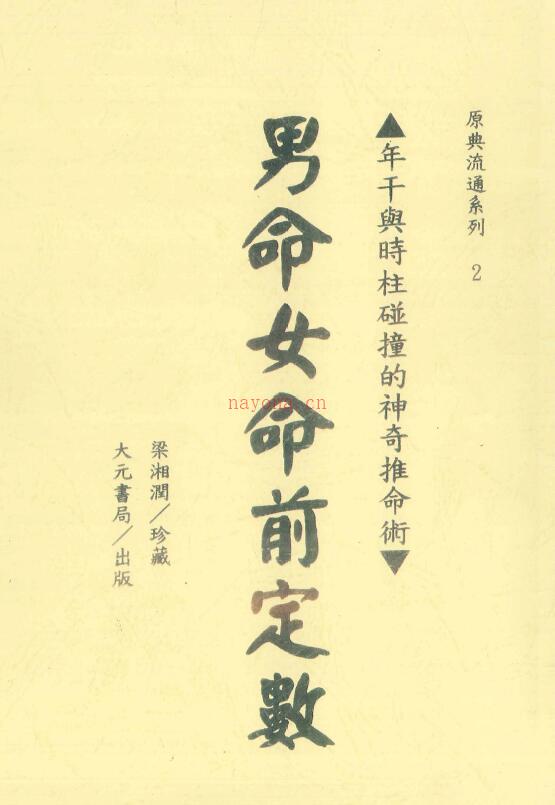 原典流通系列 2
▲年干與時柱碰撞的神奇推命術▼
男命女命前定數
nayona.cn
梁湘潤/珍藏
大元書局/出版